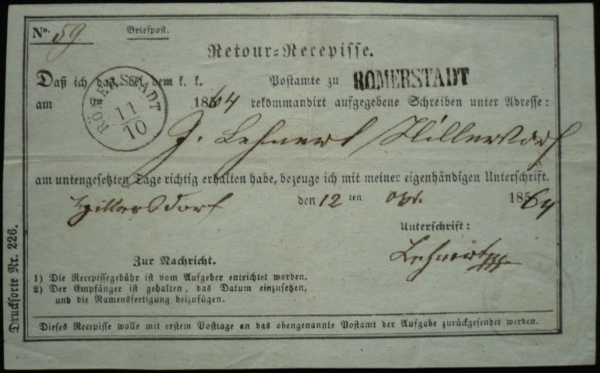 No. 59 Briefpost.
Retour-Recepisse.
Daß ich das bei dem k. k. Postamte zu RÖMERSTADT
am 1864 rekommandirt aufgegebene Schreiben unter Adresse:
RÖMERSTADT
11/10
J. Lehnert Hillersdorf
am untengesetzten Tage richtig erhalten habe, bezeuge ich mit meiner eigenhändigen Unterschrift.
Hillersdorf den 12 ten 1864
Unterschrift:
Lehnert
Zur Nachricht.
1) Die Recepissegebühr ist vom Aufgeber entrichtet worden.
2) Der Empfänger ist gehalten, das Datum einzusetzen,
und die Namensfertigung beizufügen.
Dieses Recepisse wolle mit erstem Posttage an das obengenannte Postamt der Aufgabe zurückgesendet werden.
Drucksorte Nr. 226.